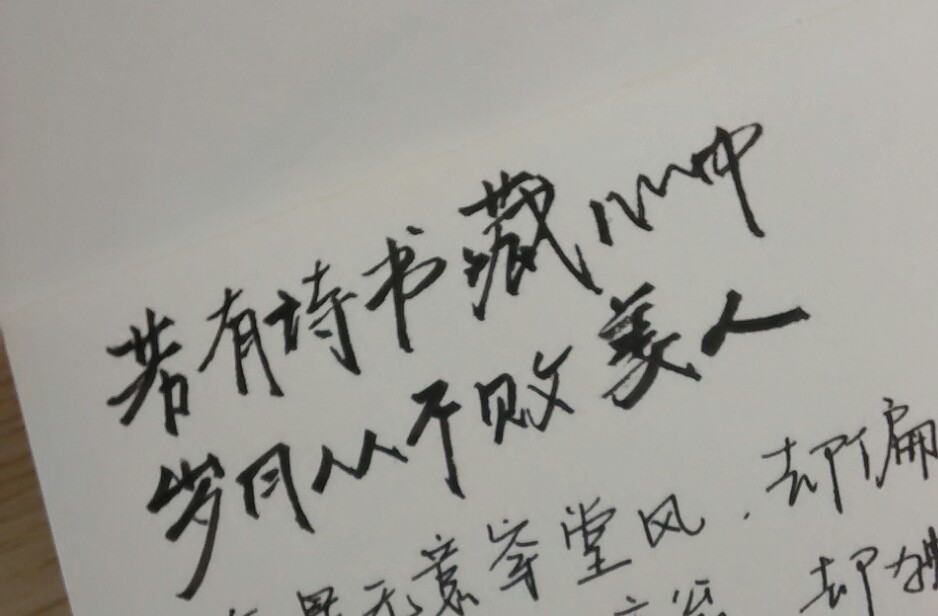 若有诗书藏心中
岁月从不败美人
无意穿堂风，却偏
却